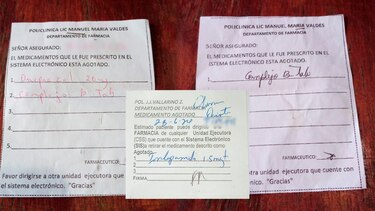 POLICLINICA LIC MANUEL MARIA VALDES
DEPARTAMENTO DE FARMACIA
SEÑOR ASEGURADO:
EL MEDICAMENTOS QUE LE FUE PRESCRITO EN EL
SISTEMA ELECTRÓNICO ESTA AGOTADO.
1
2 Complejo B Tab
3
4
5
Favor dirigirse a otra unidad ejecutora
el sistema electrónico. "Gracias"
POL. J.J. VALLARINO Z.
DEPARTAMENTO DE FARMACIA
MEDICAMENTO AGOTADO
Estimado paciente puede dirigirse
FARMACIA de cualquier Unidad Ejecutora
(CSS) que cuente con el Sistema Electrónico
(SIS) retirar el medicamento descrito como
Agotado.
1
2
3
FIRMA
POLICLINICA LIC MANUEL MARIA VALDES
DEPARTAMENTO DE FARMACIA
SEÑOR ASEGURADO:
EL MEDICAMENTOS QUE LE FUE PRESCRITO EN EL
SISTEMA ELECTRÓNICO ESTA AGOTADO.
Complejo B Tab
FARMACEUTICO
otra unidad ejecutora que cuente con
"Gracias"